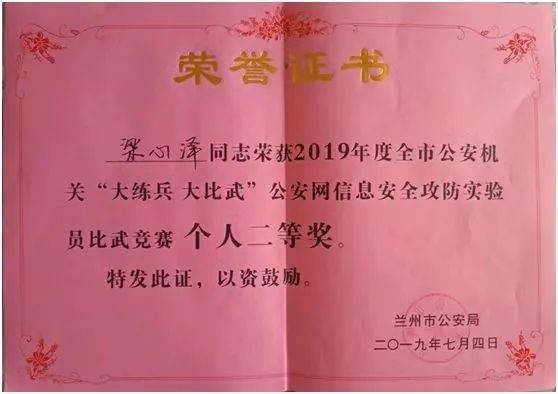 荣誉证书
梁心泽同志荣获2019年度全市公安机
关“大练兵 大比武”公安网信息安全攻防实验
员比武竞赛 个人二等奖。
特发此证，以资鼓励。
兰州市公安局
二〇一九年七月四日